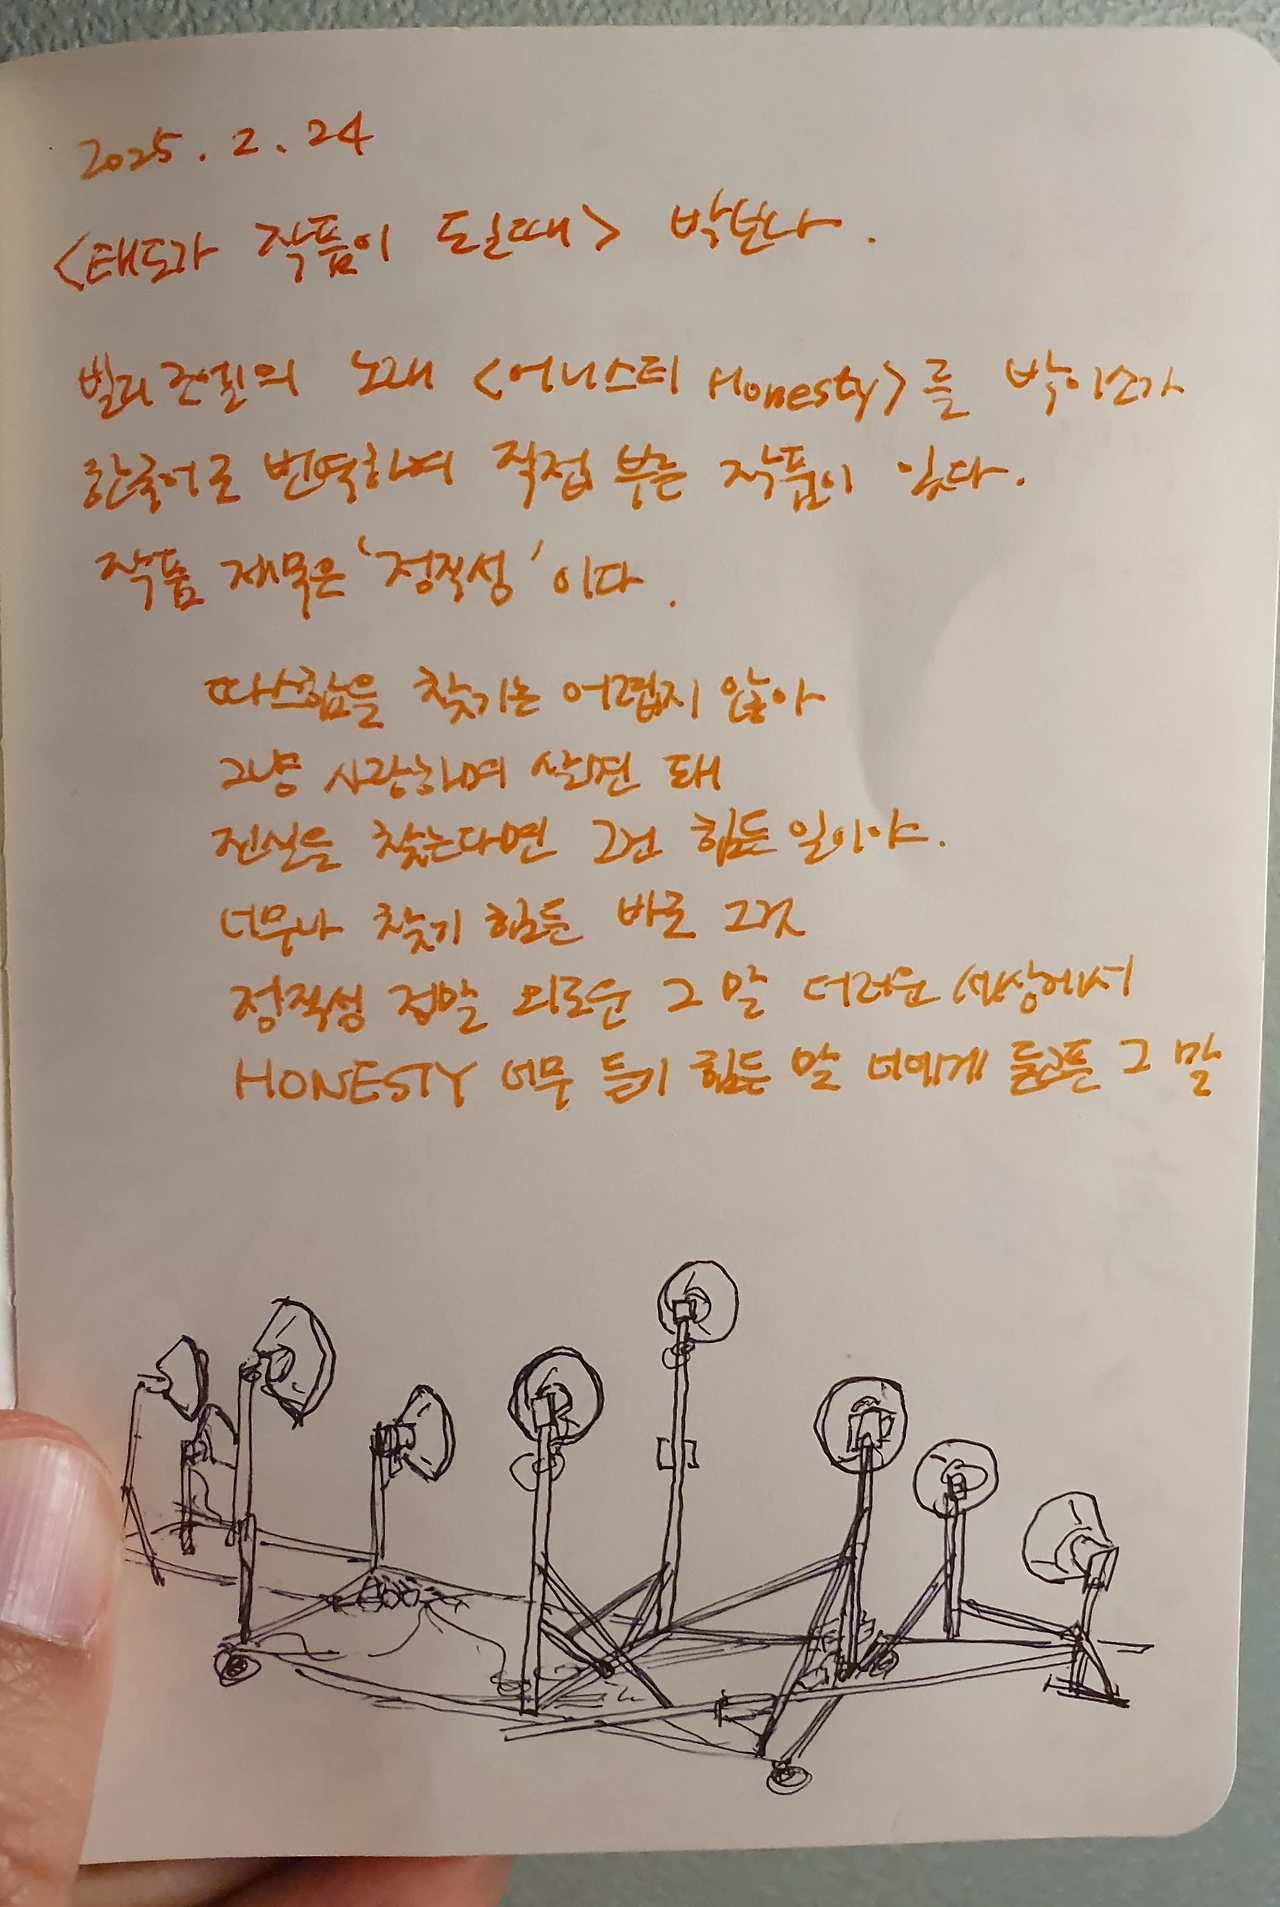 2025. 2. 24
<태도가 작품이 될때> 박보나.
빌리조엘의 노래 <어니스티 Honesty>를 박이소가
한국어로 번역하여 직접 부른 작품이 있다.
작품 제목은 '정직성' 이다.
따스함을 찾기는 어렵지 않아
그냥 사랑하며 살면 돼
진실을 찾는다면 그건 힘든 일이야.
너무나 찾기 힘든 바로 그것
정직성 정말 외로운 그 말 더러운 세상에서
HONESTY 너무 듣기 힘든 말 너에게 듣고픈 그 말